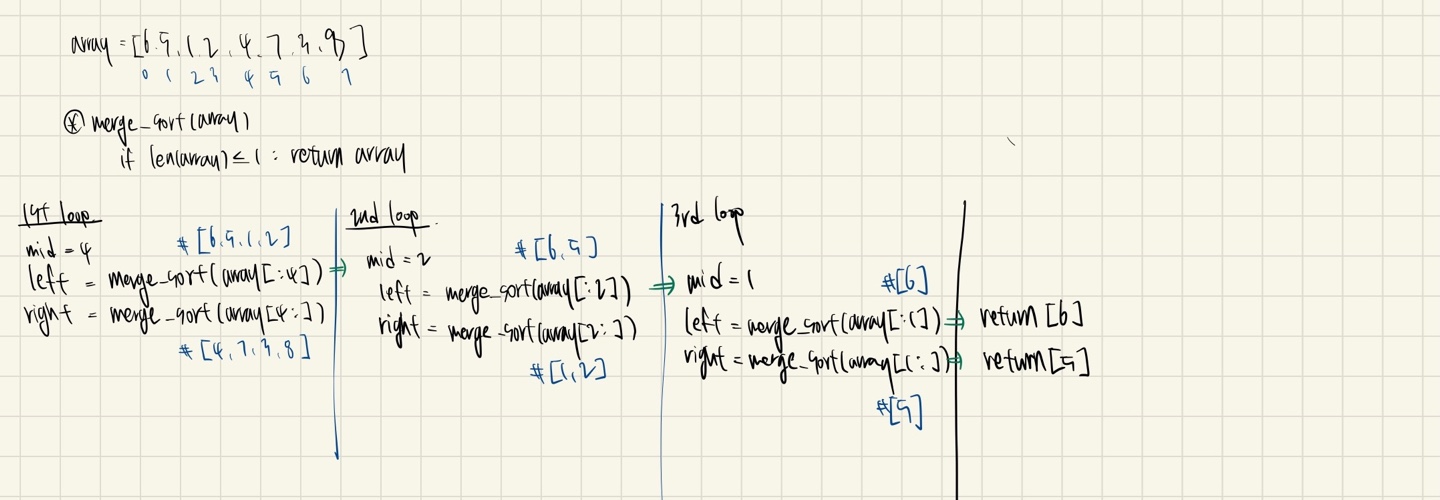 array = [6, 5, 1, 2, 4, 7, 3, 8]
0 1 2 3 4 5 6 7
* merge_sort(array)
if len(array) ≤ 1 : return array
1st loop
# [6, 5, 1, 2]
mid = 4
left = merge_sort(array[:4]) ⇒
right = merge_sort(array[4:])
# [4, 7, 3, 8]
2nd loop
# [6, 5]
mid = 2
left = merge_sort(array[:2]) ⇒
right = merge_sort(array[2:])
# [1, 2]
3rd loop
mid = 1
# [6]
left = merge_sort(array[:1]) ⇒ return [6]
right = merge_sort(array[1:]) ⇒ return [5]
# [5]